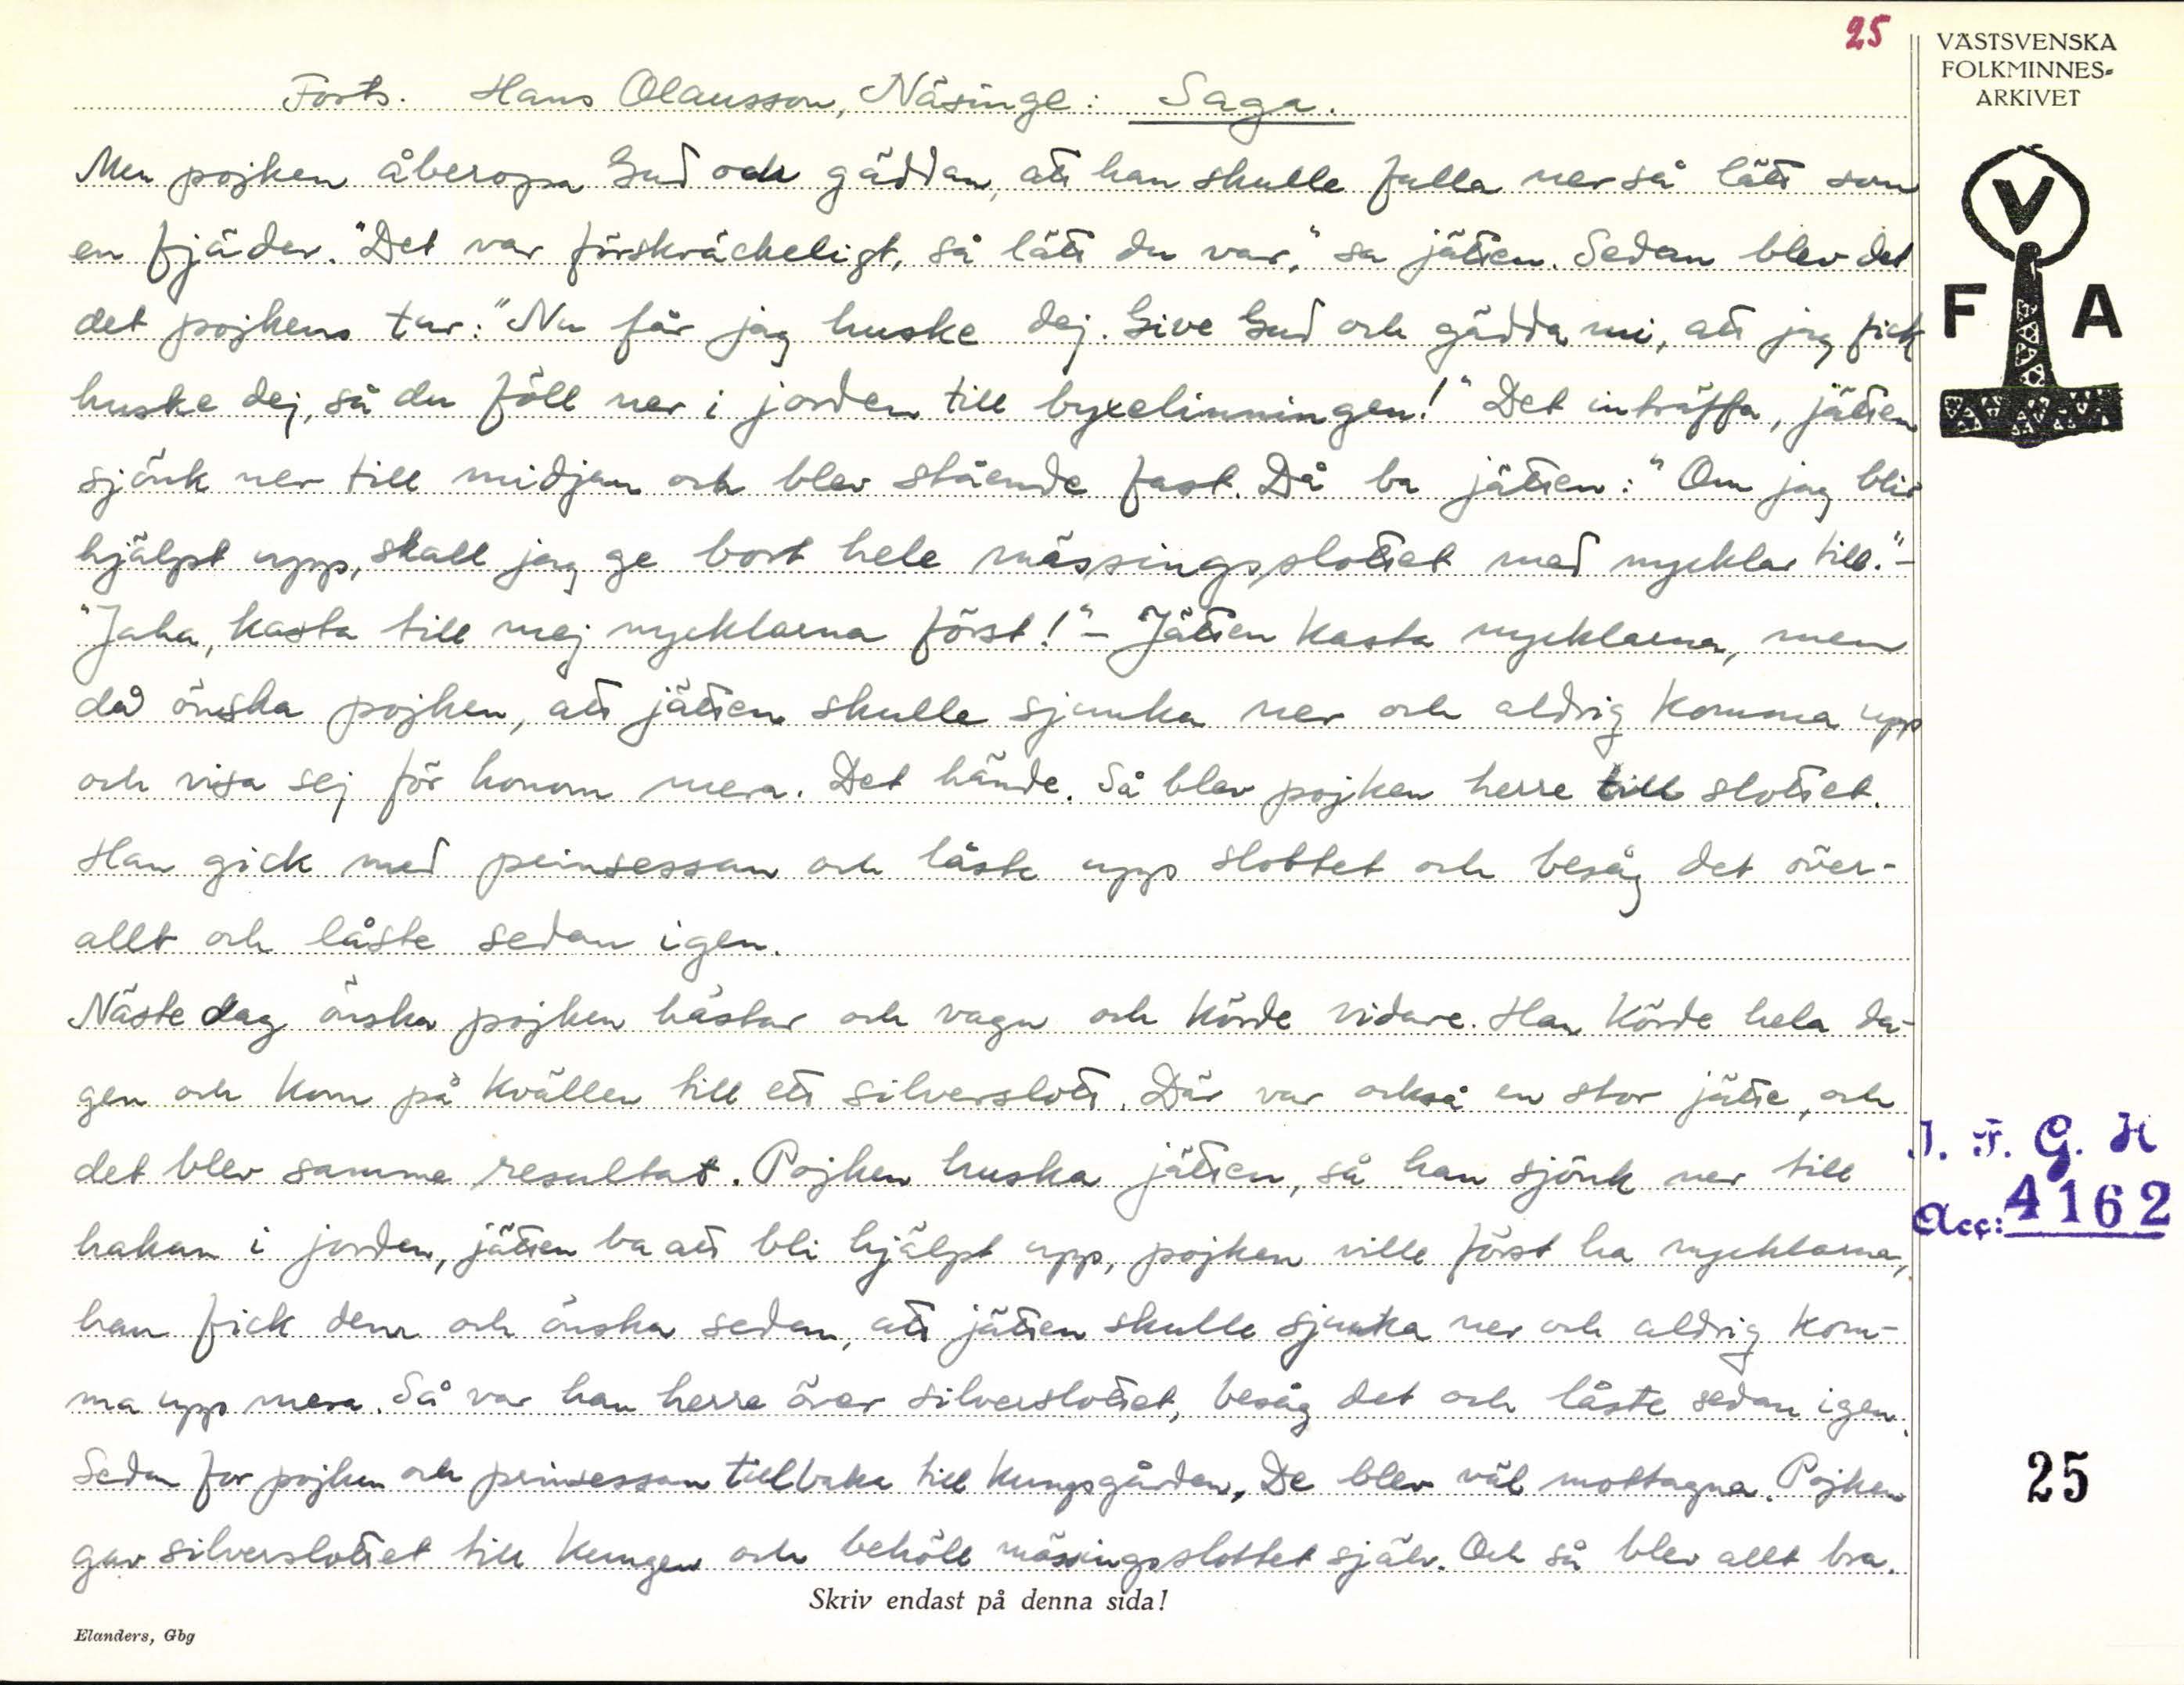 25
VÄSTSVENSKA
FOLKMINNES-
ARKIVET
Forts. Hans Olausson, Näsinge: Saga.
Men pojken åberopa Gud och gäddan, att han skulle falla ner så lätt som
en fjäder. "Det var förskräckeligt, så lätt du var," sa jätten. Sedan blev det
det pojkens tur: "Nu får jag huske dej. Give Gud och gädda mi, att jag fick
huske dej, så du föll ner i jorden till byxelinningen!" Det inträffa, jätten
sjönk ner till midjan och blev stående fast. Då ba jätten: "Om jag blir
hjälpt upp, skall jag ge bort hele mässingsslottet med nycklar till." -
"Jaha, kasta till mej nycklarna först!" - Jätten kasta nycklarna, men
då önska pojken, att jätten skulle sjunka ner och aldrig komma upp
och visa sej för honom mera. Det hände. Så blev pojken herre till slottet.
Han gick med prinsessan och låste upp slottet och besåg det över-
allt och låste sedan igen.
Näste dag önska pojken hästar och vagn och körde vidare. Han körde hela da-
gen och kom på kvällen till ett silverslott. Där var också en stor jätte, och
det blev samma resultat. Pojken huska jätten, så han sjönk ner till
hakan i jorden, jätten ba att bli hjälpt upp, pojken ville först ha nycklarna,
han fick dem och önska sedan, att jätten skulle sjunka ner och aldrig kom-
ma upp mera. Så var han herre över silverslottet, besåg det och låste sedan igen.
Sedan for pojken och prinsessan tillbaka till kungsgården. De blev väl mottagna. Pojken
gav silverslottet till kungen och behöll mässingsslottet själv. Och så blev allt bra.
V
F A
I. F. G. H
Acc: 4162
25
Skriv endast på denna sida!
Elanders, Gbg